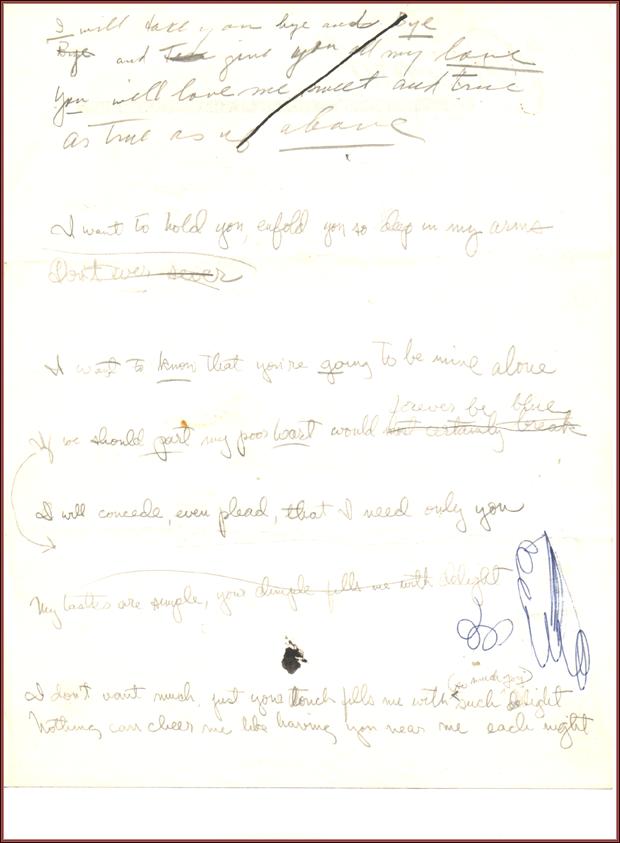 I will take you bye and Bye
Bye and give you all my love
You will love me sweet and true
as true as above
I want to hold you, enfold you so deep in my arms
Don't ever sever
I want to know that you're going to be mine alone
forever be blue
If we should part my poor heart would not certainly break
I will concede, even plead, that I need only you
My tastes are simple, your dimple fills me with delight
(so much joy)
I don't want much, just your touch fills me with such delight
Nothing can cheer me like having you near me each night